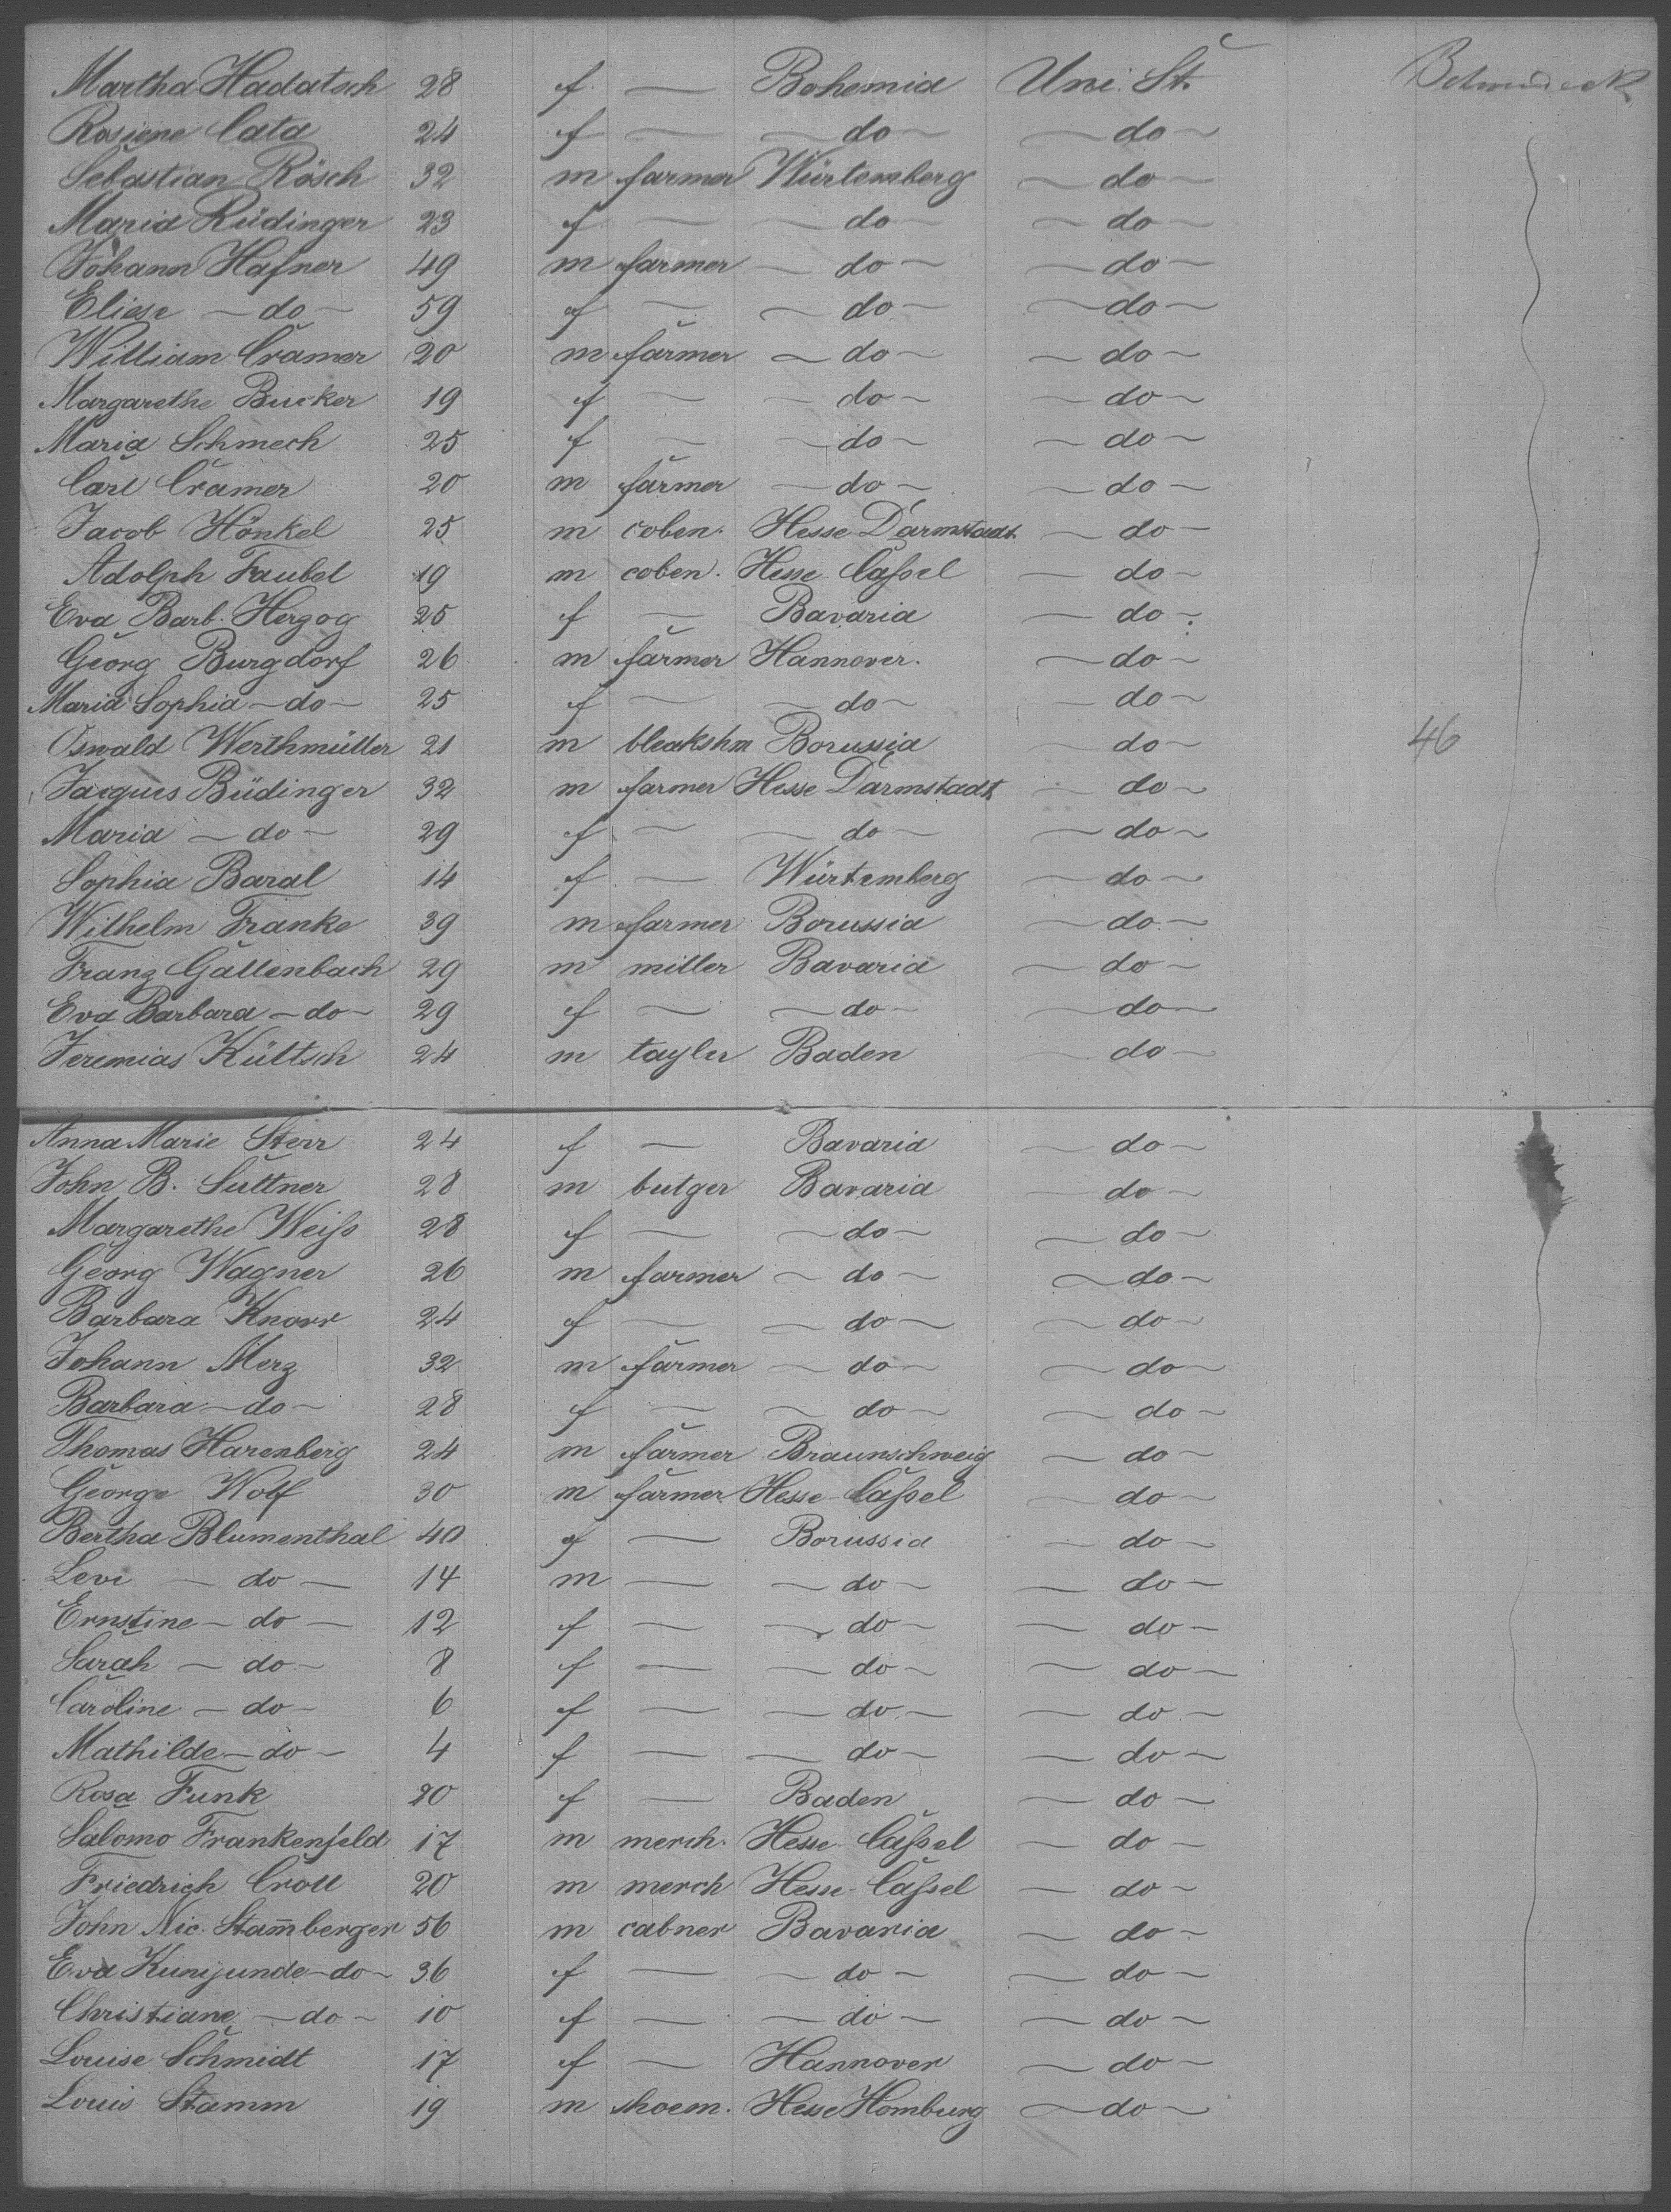 Martha Hadatsch 28 f. — Bohemia Uni. St.
Rosiene Cata 24 f — — do — — do —
Sebastian Rösch 32 m farmer Würtemberg — do —
Maria Rüdinger 23 f — — do — — do —
Johann Hafner 49 m farmer — do — — do —
Eliese — do — 59 f — — do — — do —
William Cramer 20 m farmer — do — — do —
Margarethe Bucker 19 f — — do — — do —
Maria Schmech 25 f — — do — — do —
Carl Cramer 20 m farmer — do — — do —
Jacob Hönkel 25 m coben. Hesse Darmstadt — do —
Adolph Faubel 19 m coben. Hesse Caßel — do —
Eva Barb. Herzog 25 f — Bavaria — do —
Georg Burgdorf 26 m farmer Hannover. — do —
Maria Sophia — do — 25 f — — do — — do —
Oswald Werthmüller 21 m bleakshm Borussia — do — 46
Jacques Büdinger 32 m farmer Hesse Darmstadt — do —
Maria — do — 29 f — — do — — do —
Sophia Baral 14 f — Würtemberg — do —
Wilhelm Franke 39 m farmer Borussia — do —
Franz Gallenbach 29 m miller Bavaria — do —
Eva Barbara — do — 29 f — — do — — do —
Jeremias Kültsch 24 m tayler Baden — do —
Anna Marie Sterr 24 f — Bavaria — do —
John B. Suttner 28 m butger Bavaria — do —
Margarethe Weiß 28 f — — do — — do —
Georg Wagner 26 m farmer — do — — do —
Barbara Knorr 24 f — — do — — do —
Johann Merz 32 m farmer — do — — do —
Barbara — do — 28 f — — do — — do —
Thomas Harenberg 24 m farmer Braunschweig — do —
George Wolf 30 m farmer Hesse Caßel — do —
Bertha Blumenthal 40 f — Borussia — do —
Levi — do — 14 m — — do — — do —
Ernstine — do — 12 f — — do — — do —
Sarah — do — 8 f — — do — — do —
Caroline — do — 6 f — — do — — do —
Mathilde — do — 4 f — — do — — do —
Rosa Funk 20 f — Baden — do —
Salomo Frankenfeld 17 m merch. Hesse Caßel — do —
Friedrich Croll 20 m merch Hesse Caßel — do —
John Nic. Stam̄berger 56 m cabner Bavaria — do —
Eva Kunijunde — do — 36 f — — do — — do —
Christiane — do — 10 f — — do — — do —
Louise Schmidt 17 f — Hannover — do —
Louis Stamm 19 m shoem. Hesse Homburg — do —